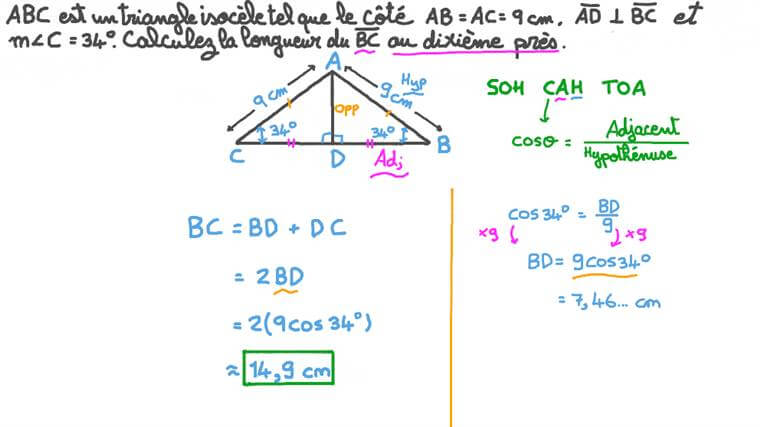 ABC est un triangle isocèle tel que le côté AB = AC = 9 cm, AD ⊥ BC et
m∠C = 34°. Calculez la longueur du BC au dixième près.
A
9 cm
Hyp
9 cm
opp
34°
34°
C
D
B
Adj
SOH CAH TOA
cosθ = Adjacent / Hypothénuse
BC = BD + DC
= 2BD
= 2(9cos34°)
≈ 14,9 cm
cos34° = BD / 9
×9
×9
BD = 9cos34°
= 7,46... cm